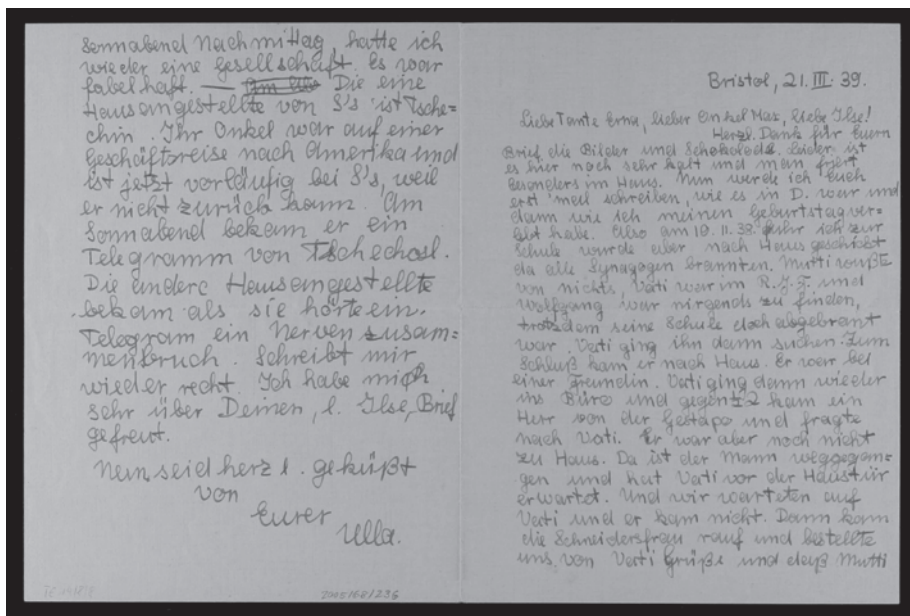 Sonnabend Nachmittag, hatte ich
wieder eine Gesellschaft. Es war
fabelhaft. — Die eine
Hausangestellte von S's ist Tsche-
chin. Ihr Onkel war auf einer
Geschäftsreise nach Amerika und
ist jetzt vorläufig bei S's, weil
er nicht zurück kann. Am
Sonnabend bekam er ein
Telegramm von Tschechosl.
Die andere Hausangestellte
bekam als sie hörte ein
Telegram ein Nervenzusam-
menbruch. Schreibt mir
wieder recht. Ich habe mich
sehr über Deinen, l. Ilse, Brief
gefreut.
Nun, seid herzl. geküßt
von
Eurer
Ulla.
Bristol, 21. III. 39.
Liebe Tante Erna, lieber Onkel Max, liebe Ilse!
Herzl. Dank für Euern
Brief die Bilder und Schokolade. Leider ist
es hier noch sehr kalt und man friert
besonders im Haus. Nun werde ich Euch
erst mal schreiben, wie es in D. war und
dann wie ich meinen Geburtstag ver=
lebt habe. Also am 10. 11. 38. fuhr ich zur
Schule wurde aber nach Haus geschickt
da alle Synagogen brannten. Mutti wußte
von nichts. Vati war im R.J.F. und
Wolfgang war nirgends zu finden,
trotzdem seine Schule doch abgebrant
war. Vati ging ihn dann suchen. Zum
Schluß kam er nach Haus. Er war bei
einer Freundin. Vati ging dann wieder
ins Büro und gegen ½2 kam ein
Herr von der Gestapo und fragte
nach Vati. Er war aber noch nicht
zu Haus. Da ist der Mann weggegan-
gen und hat Vati vor der Haustür
erwartet. Und wir warteten auf
Vati und er kam nicht. Dann kam
die Schneidersfrau rauf und bestellte
uns, von Vati Grüße und daß Mutti